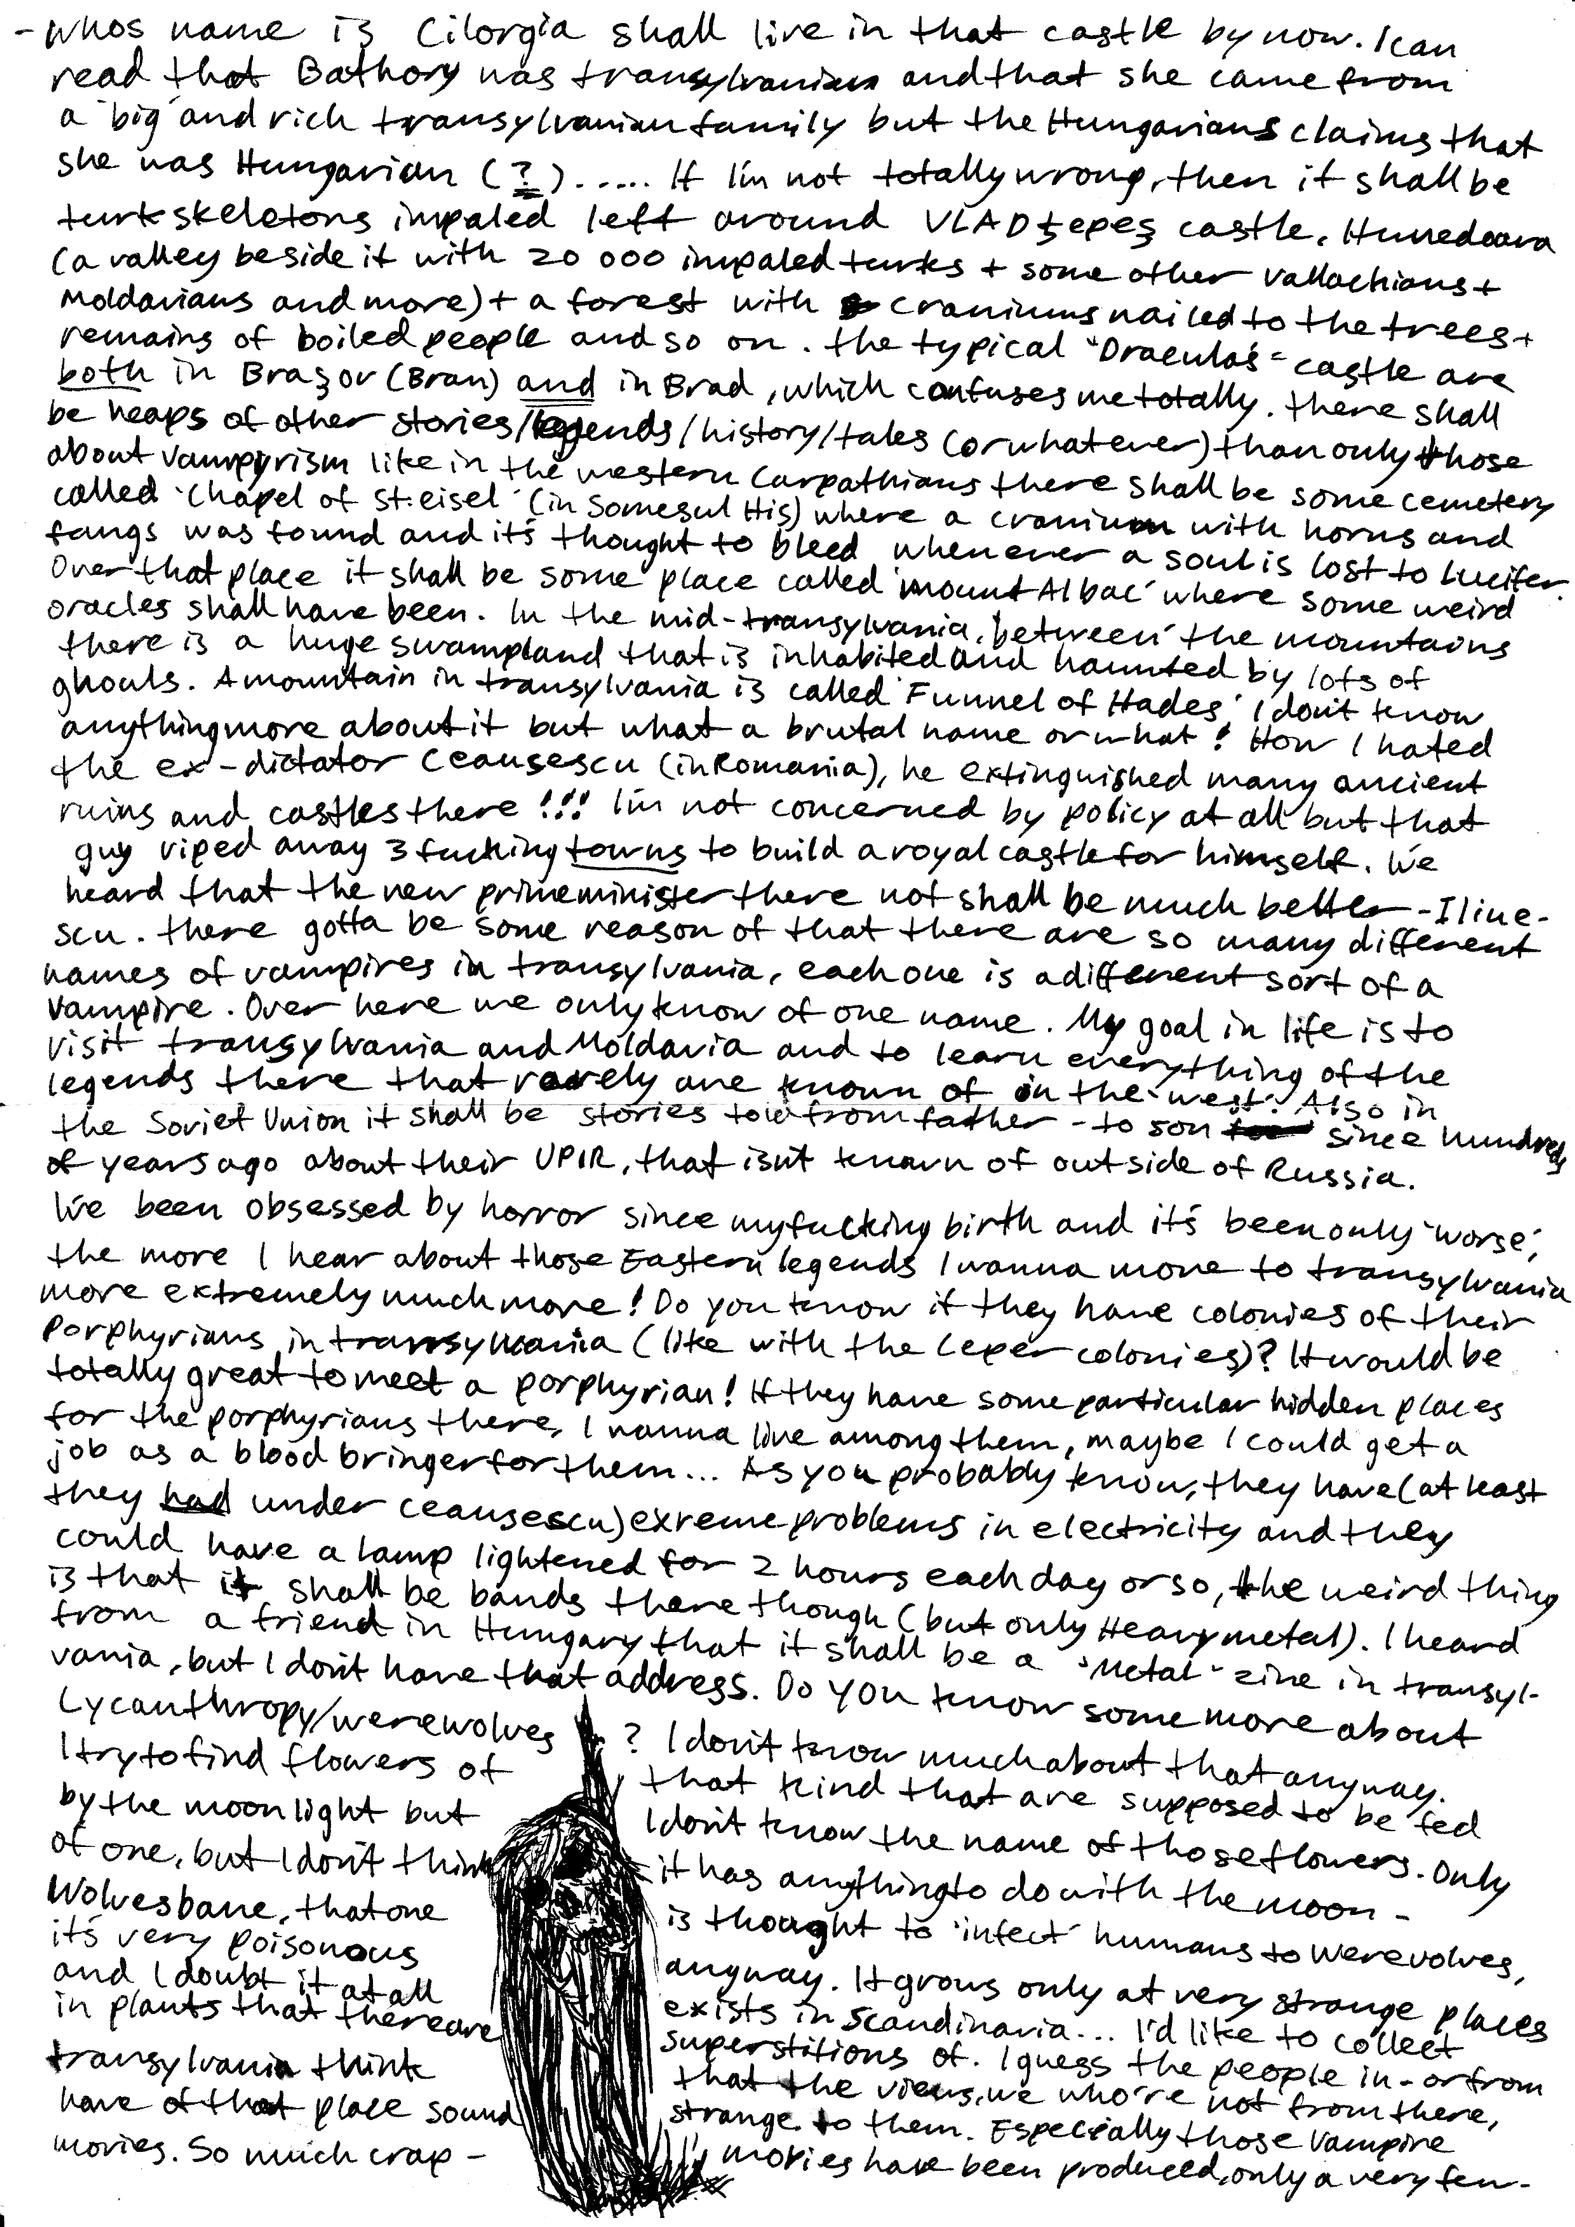 - whos name is Cilorgia shall live in that castle by now. I can
read that Bathory was transylvanian and that she came from
a 'big' and rich transylvanian family but the Hungarians claims that
she was Hungarian (?)..... If I'm not totally wrong, then it shall be
turk skeletons impaled left around VLAD Ţepeş castle, Hunedoara
(a valley beside it with 20 000 impaled turks + some other vallachians +
Moldavians and more) + a forest with craniums nailed to the trees +
remains of boiled people and so on. The typical "Dracula's" castle are
both in Braşov (Bran) and in Brad, which confuses me totally. There shall
be heaps of other stories/legends/history/tales (or whatever) than only those
about vampyrism like in the western Carpathians there shall be some cemetery
called 'Chapel of St. eisel' (in Somesul His) where a cranium with horns and
fangs was found and it's thought to bleed whenever a soul is lost to Lucifer.
Over that place it shall be some place called 'mount Albac' where some weird
oracles shall have been. In the mid-transylvania, 'between' the mountains
there is a huge swampland that is inhabited and haunted by lots of
ghouls. A mountain in transylvania is called 'Funnel of Hades' I don't know
anything more about it but what a brutal name or what! How I hated
the ex-dictator Ceausescu (in Romania), he extinguished many ancient
ruins and castles there!!! I'm not concerned by policy at all but that
guy viped away 3 fucking towns to build a royal castle for himself. We
heard that the new primeminister there not shall be much better - Iline-
scu. There gotta be some reason of that there are so many different
names of vampires in transylvania, each one is a different sort of a
vampire. Over here we only know of one name. My goal in life is to
visit transylvania and Moldavia and to learn everything of the
legends there that rarely are known of in the 'west'. Also in
the Soviet Union it shall be stories told from father - to son since hundreds
of years ago about their UPIR, that isn't known of outside of Russia.
I've been obsessed by horror since my fucking birth and it's been only 'worse',
the more I hear about those Eastern legends I wanna move to transylvania
more extremely much more! Do you know if they have colonies of their
porphyrians in transylvania (like with the leper colonies)? It would be
totally great to meet a porphyrian! If they have some particular hidden places
for the porphyrians there, I wanna live among them, maybe I could get a
job as a blood bringer for them... As you probably know, they have (at least
they had under ceausescu) exreme problems in electricity and they
could have a lamp lightened for 2 hours each day or so, the weird thing
is that it shall be bands there though (but only Heavy metal). I heard
from a friend in Hungary that it shall be a 'Metal' zine in transyl-
vania, but I don't have that address. Do you know some more about
Lycanthropy/werewolves ? I don't know much about that anyway.
I try to find flowers of that kind that are supposed to be fed
by the moonlight but I don't know the name of those flowers. Only
of one, but I don't think it has anything to do with the moon -
Wolvesbane, that one is thought to 'infect' humans to werevolves,
it's very poisonous anyway. It grows only at very strange places
and I doubt it at all exists in Scandinavia... I'd like to collect
in plants that there are superstitions of. I guess the people in - or from
transylvania think that the views, we who're not from there,
have of that place sound strange to them. Especially those vampire
movies. So much crap - movies have been produced, only a very few -